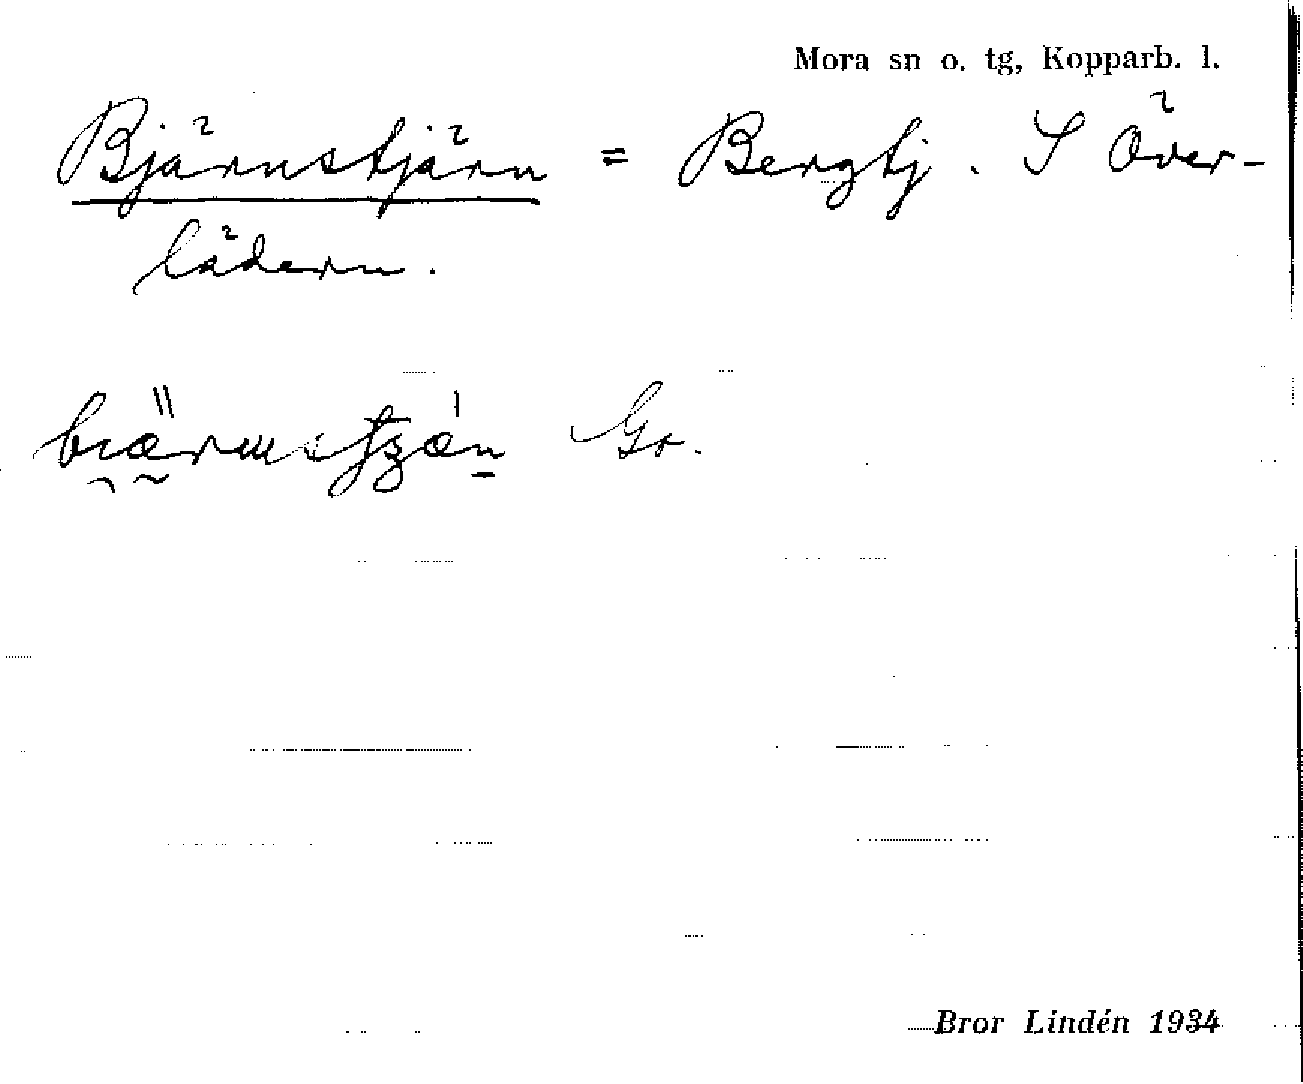 Mora sn o. tg, Kopparb. l.
Bjärnstjärn = Bergtj. S Över-
lädern.
Gr.
Bror Lindén 1934